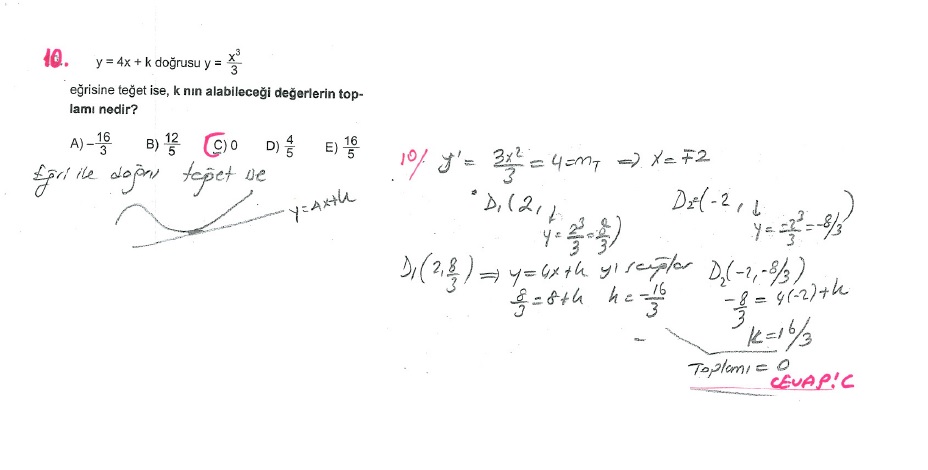 10. y = 4x + k doğrusu y = x³/3
eğrisine teğet ise, k nın alabileceği değerlerin top-
lamı nedir?
A) -16/3 B) 12/5 C) 0 D) 4/5 E) 16/5
Eğri ile doğru teğet ise
y=4x+k
10/ y' = 3x²/3 = 4 = m_T ⇒ x = ∓2
D₁(2, ↓ D₂(-2, ↓ )
y = 2³/3 = 8/3) y = -2³/3 = -8/3
D₁(2, 8/3) ⇒ y = 4x+k yı sağlar D₂(-2, -8/3)
8/3 = 8+k k = -16/3 -8/3 = 4(-2)+k
k = 16/3
Toplamı = 0
CEVAP: C